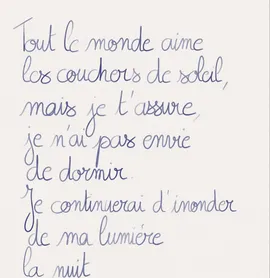 Tout le monde aime
les couchers de soleil,
mais je t'assure,
je n'ai pas envie
de dormir.
Je continuerai d'inonder
de ma lumière
la nuit